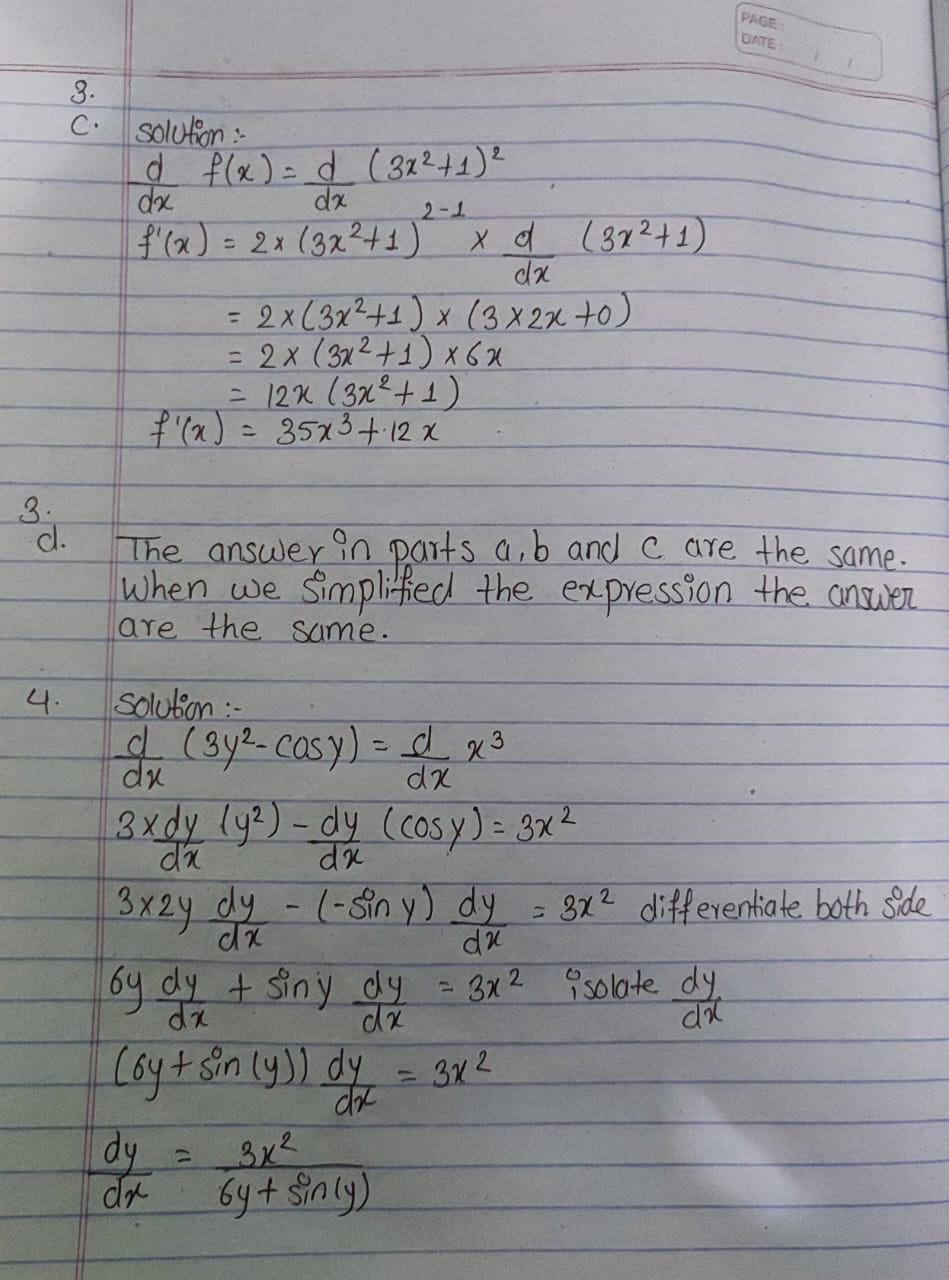 PAGE:
DATE: / /
3.
c. solution :-
d/dx f(x) = d/dx (3x²+1)²
f'(x) = 2 × (3x²+1)^(2-1) × d/dx (3x²+1)
= 2 × (3x²+1) × (3×2x+0)
= 2 × (3x²+1) × 6x
= 12x (3x²+1)
f'(x) = 35x³ + 12x
3.
d. The answer in parts a, b and c are the same.
When we simplified the expression the answer
are the same.
4. solution :-
d/dx (3y²-cosy) = d/dx x³
3×dy/dx (y²) - dy/dx (cosy) = 3x²
3×2y dy/dx - (-sin y) dy/dx = 3x² differentiate both side
6y dy/dx + siny dy/dx = 3x² isolate dy/dx
(6y + sin(y)) dy/dx = 3x²
dy/dx = 3x²/(6y + sin(y))